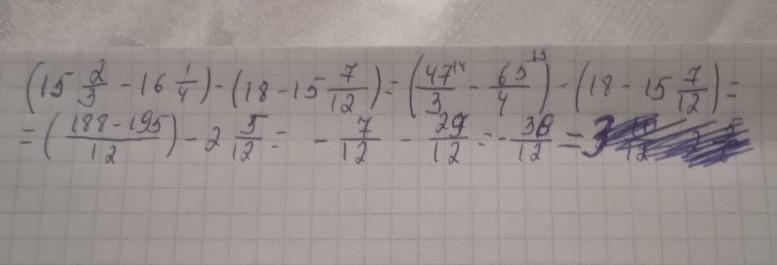 (15 2/3 - 16 1/4) - (18 - 15 7/12) = (47/3 - 65/4) - (18 - 15 7/12) =
= (188-195/12) - 2 5/12 = - 7/12 - 29/12 = - 36/12 = 3